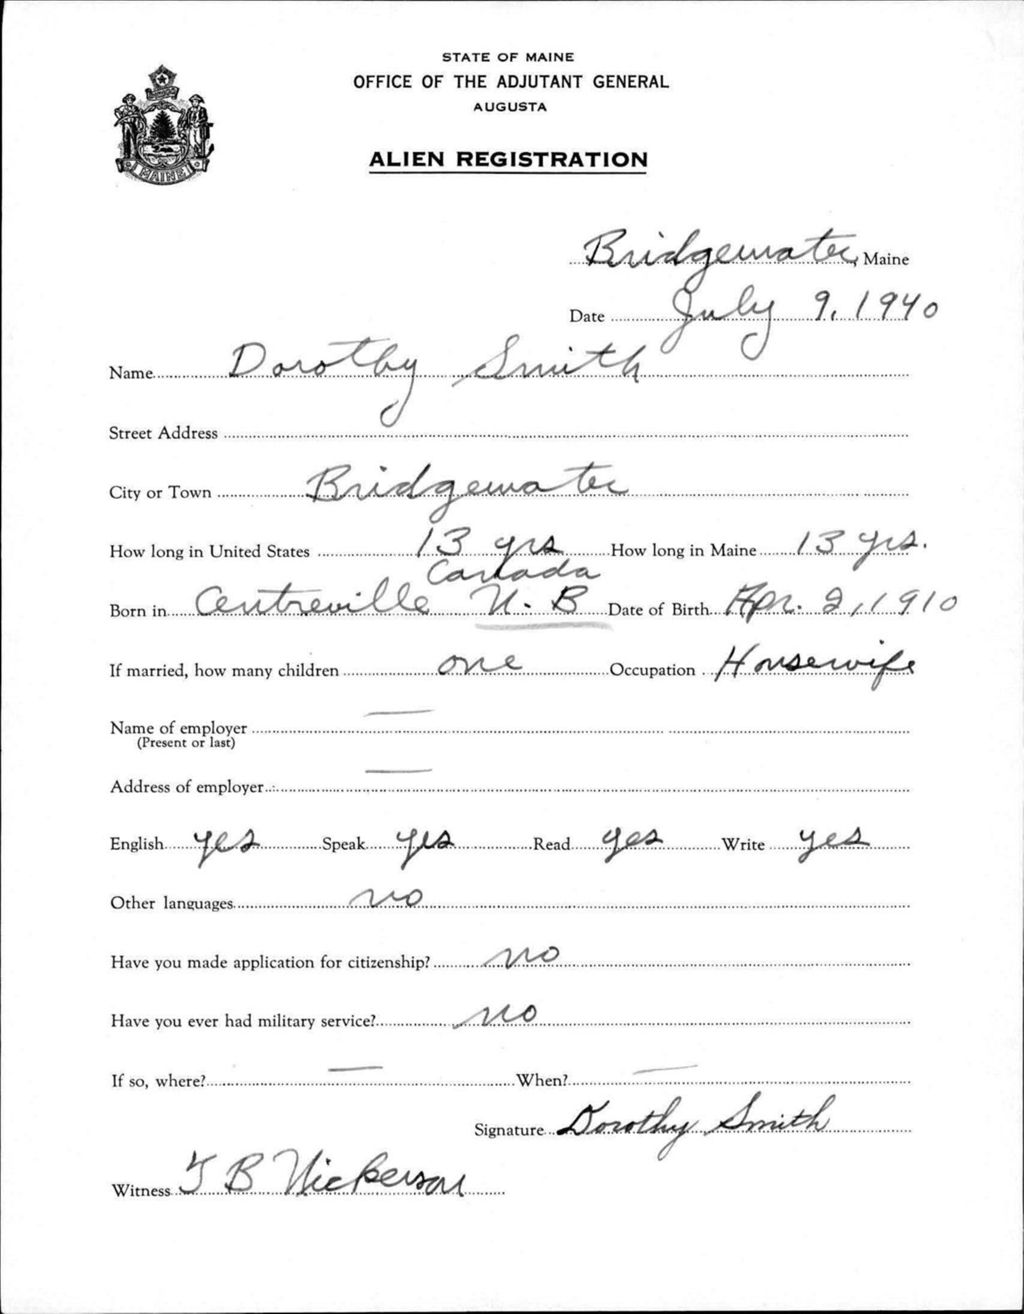 STATE OF MAINE
OFFICE OF THE ADJUTANT GENERAL
AUGUSTA
ALIEN REGISTRATION
MAINE
Bridgewater, Maine
Date July 9, 1940
Name Dorothy Smith
Street Address
City or Town Bridgewater
How long in United States 13 yrs How long in Maine 13 yrs.
Canada
Born in Centreville N. B Date of Birth Apr. 2, 1910
If married, how many children one Occupation Housewife
Name of employer —
(Present or last)
Address of employer —
English yes Speak yes Read yes Write yes
Other languages no
Have you made application for citizenship? no
Have you ever had military service? no
If so, where? — When? —
Signature Dorothy Smith
Witness T B Nickerson